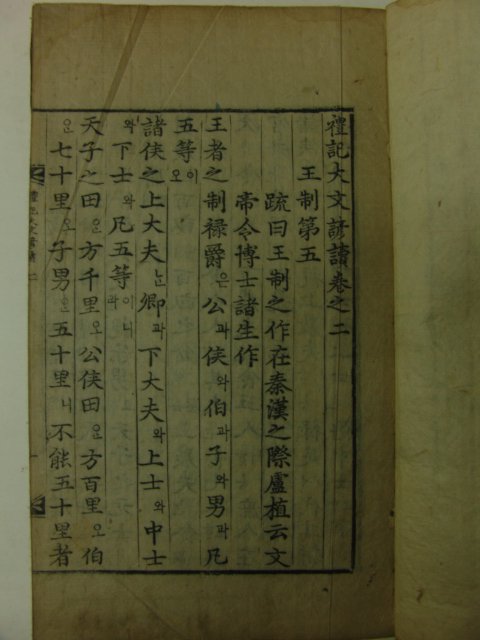 禮記大文諺讀卷之二
王制第五
疏曰王制之作在秦漢之際盧植云文
帝令博士諸生作
王者之制祿爵은公과侯와伯과子와男과凡
五等이오
諸侯之上大夫눈卿과下大夫와上士와中士
와下士와凡五等이니라
天子之田은方千里오公侯田은方百里오伯
은七十里오子男은五十里니不能五十里者